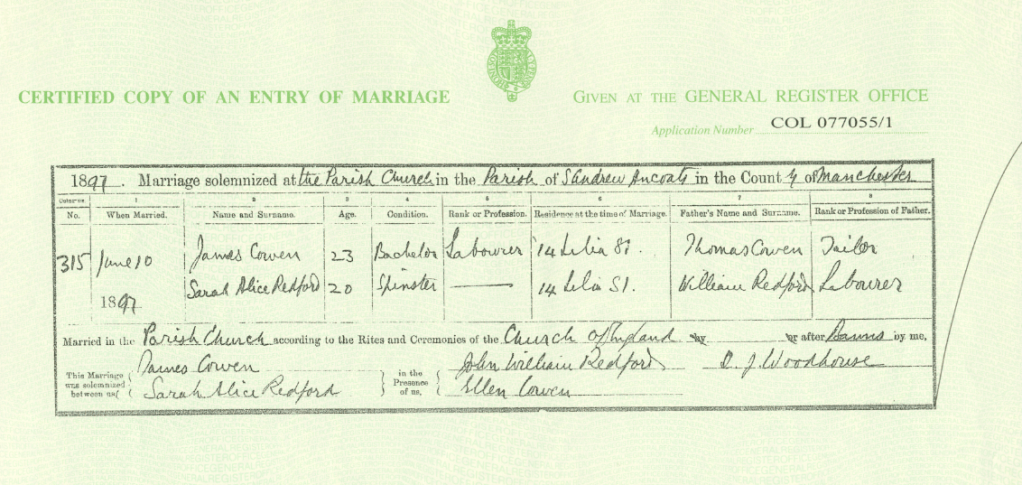 CERTIFIED COPY OF AN ENTRY OF MARRIAGE
GIVEN AT THE GENERAL REGISTER OFFICE
Application Number COL 077055/1
1897. Marriage solemnized at the Parish Church in the Parish of S Andrew Ancoats in the County of Manchester
No. When Married. Name and Surname. Age. Condition. Rank or Profession. Residence at the time of Marriage. Father's Name and Surname. Rank or Profession of Father.
315 June 10 James Cowen 23 Bachelor Labourer 14 Lelia St. Thomas Cowen Tailor
1897 Sarah Alice Redford 20 Spinster 14 Lelia St. William Redford Labourer
Married in the Parish Church according to the Rites and Ceremonies of the Church of England by or after Banns by me,
This Marriage was solemnized between us, James Cowen in the Presence of us, John William Redford J. Woodhouse
Sarah Alice Redford Ellen Cowen